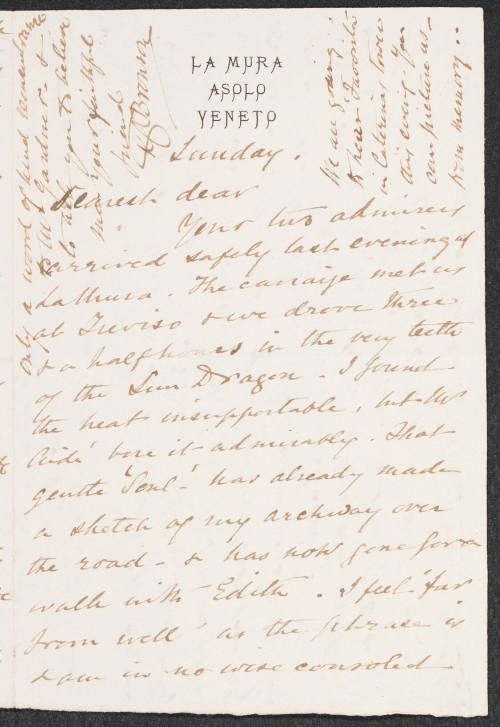 LA MURA
ASOLO
VENETO
Sunday.
Dearest dear
Your two admirers
arrived safely last evening at
La Mura. The carraige met us
at Treviso & we drove three
& a half hours in the very teeth
of the Sun Dragon - I found
the heat insupportable, but
bore it admirably. That
gentle "Soul" has already made
a sketch of my archway over
the road - & has now gone for a
walk with Edith. I feel "far
from well" as the phrase is
& am in no wise consoled
Only a word of kind remembrance
to Mr Gardner - &
to ask you to believe
me your faithful
friend
Bronson
We are going
to hear "Favorita"
in
this evening - You
can picture us -
from memory..